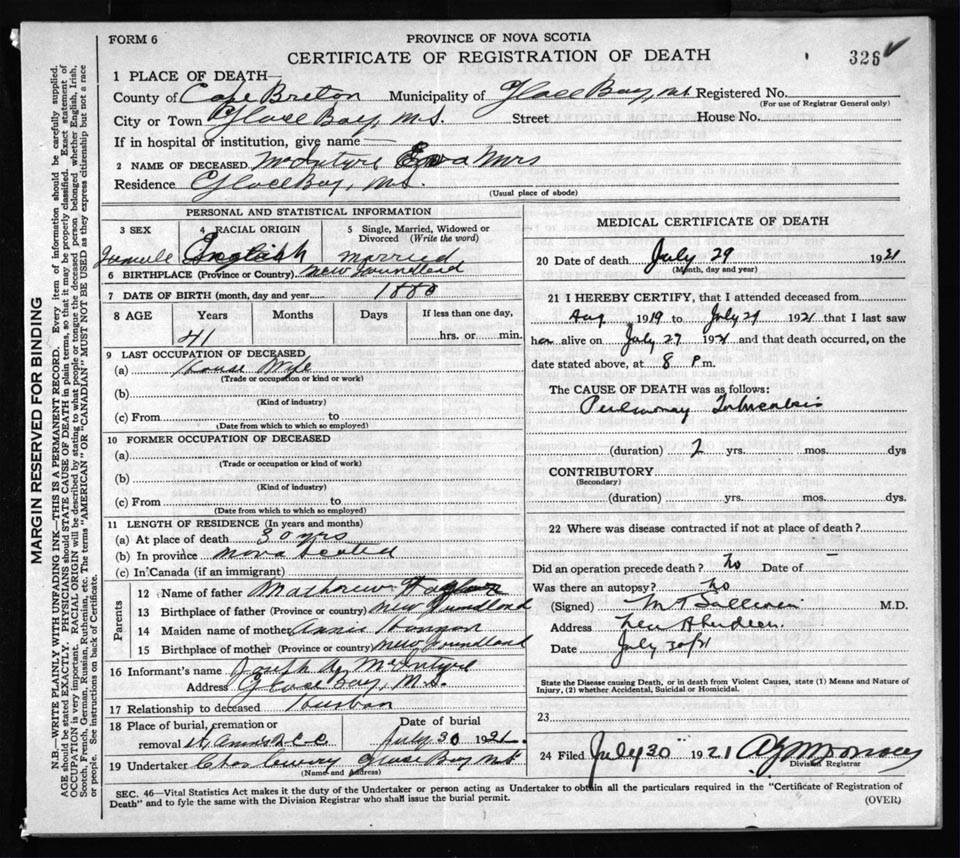 FORM 6
PROVINCE OF NOVA SCOTIA
CERTIFICATE OF REGISTRATION OF DEATH
326
1 PLACE OF DEATH—
County of Cape Breton Municipality of Glace Bay, N.S. Registered No.
(For use of Registrar General only)
City or Town Glace Bay, N.S. Street House No.
If in hospital or institution, give name
2 NAME OF DECEASED McIntyre Mrs
Residence Glace Bay, N.S.
(Usual place of abode)
PERSONAL AND STATISTICAL INFORMATION
3 SEX 4 RACIAL ORIGIN 5 Single, Married, Widowed or Divorced (Write the word)
Female English married
6 BIRTHPLACE (Province or Country) New Foundland
7 DATE OF BIRTH (month, day and year) 1880
8 AGE Years Months Days If less than one day,
41 hrs. or min.
9 LAST OCCUPATION OF DECEASED
(a) House Wife
(Trade or occupation or kind of work)
(b)
(Kind of industry)
(c) From to
(Date from which to which so employed)
10 FORMER OCCUPATION OF DECEASED
(a)
(Trade or occupation or kind of work)
(b)
(Kind of industry)
(c) From to
(Date from which to which so employed)
11 LENGTH OF RESIDENCE (In years and months)
(a) At place of death 30 yrs
(b) In province Nova Scotia
(c) In Canada (if an immigrant)
Parents
12 Name of father
13 Birthplace of father (Province or country) New Foundland
14 Maiden name of mother Annie
15 Birthplace of mother (Province or country) New Foundland
16 Informant's name McIntyre
Address Glace Bay, N.S.
17 Relationship to deceased Husban
18 Place of burial, cremation or removal Date of burial
July 30 1921.
19 Undertaker Glace Bay N.S.
(Name and Address)
MEDICAL CERTIFICATE OF DEATH
20 Date of death July 29 1921
(Month, day and year)
21 I HEREBY CERTIFY, that I attended deceased from
Aug 1919 to July 29 1921 that I last saw
her alive on July 27 1921 and that death occurred, on the
date stated above, at 8 P.m.
The CAUSE OF DEATH was as follows:
Pulmonary Tuberculosis
(duration) 2 yrs. mos. dys
CONTRIBUTORY
(Secondary)
(duration) yrs. mos. dys.
22 Where was disease contracted if not at place of death?
Did an operation precede death? No Date of —
Was there an autopsy? No
(Signed) M T Sullivan M.D.
Address New Aberdeen.
Date July 30/21
State the Disease causing Death, or in death from Violent Causes, state (1) Means and Nature of Injury, (2) whether Accidental, Suicidal or Homicidal.
23
24 Filed July 30 1921
Division Registrar
SEC. 46—Vital Statistics Act makes it the duty of the Undertaker or person acting as Undertaker to obtain all the particulars required in the "Certificate of Registration of
Death" and to fyle the same with the Division Registrar who shall issue the burial permit.
(OVER)
MARGIN RESERVED FOR BINDING
N.B.—WRITE PLAINLY WITH UNFADING INK—THIS IS A PERMANENT RECORD. Every item of information should be carefully supplied.
AGE should be stated EXACTLY. PHYSICIANS should STATE CAUSE OF DEATH in plain terms, so that it may be properly classified. Exact statement of
OCCUPATION is very important. RACIAL ORIGIN will be described by stating to what people or tongue the deceased person belonged whether English, Irish,
Scotch, French, German, Russian, Ruthenian, etc. The terms "AMERICAN" OR "CANADIAN" MUST NOT BE USED as they express citizenship but not a race
or people. See instructions on back of Certificate.